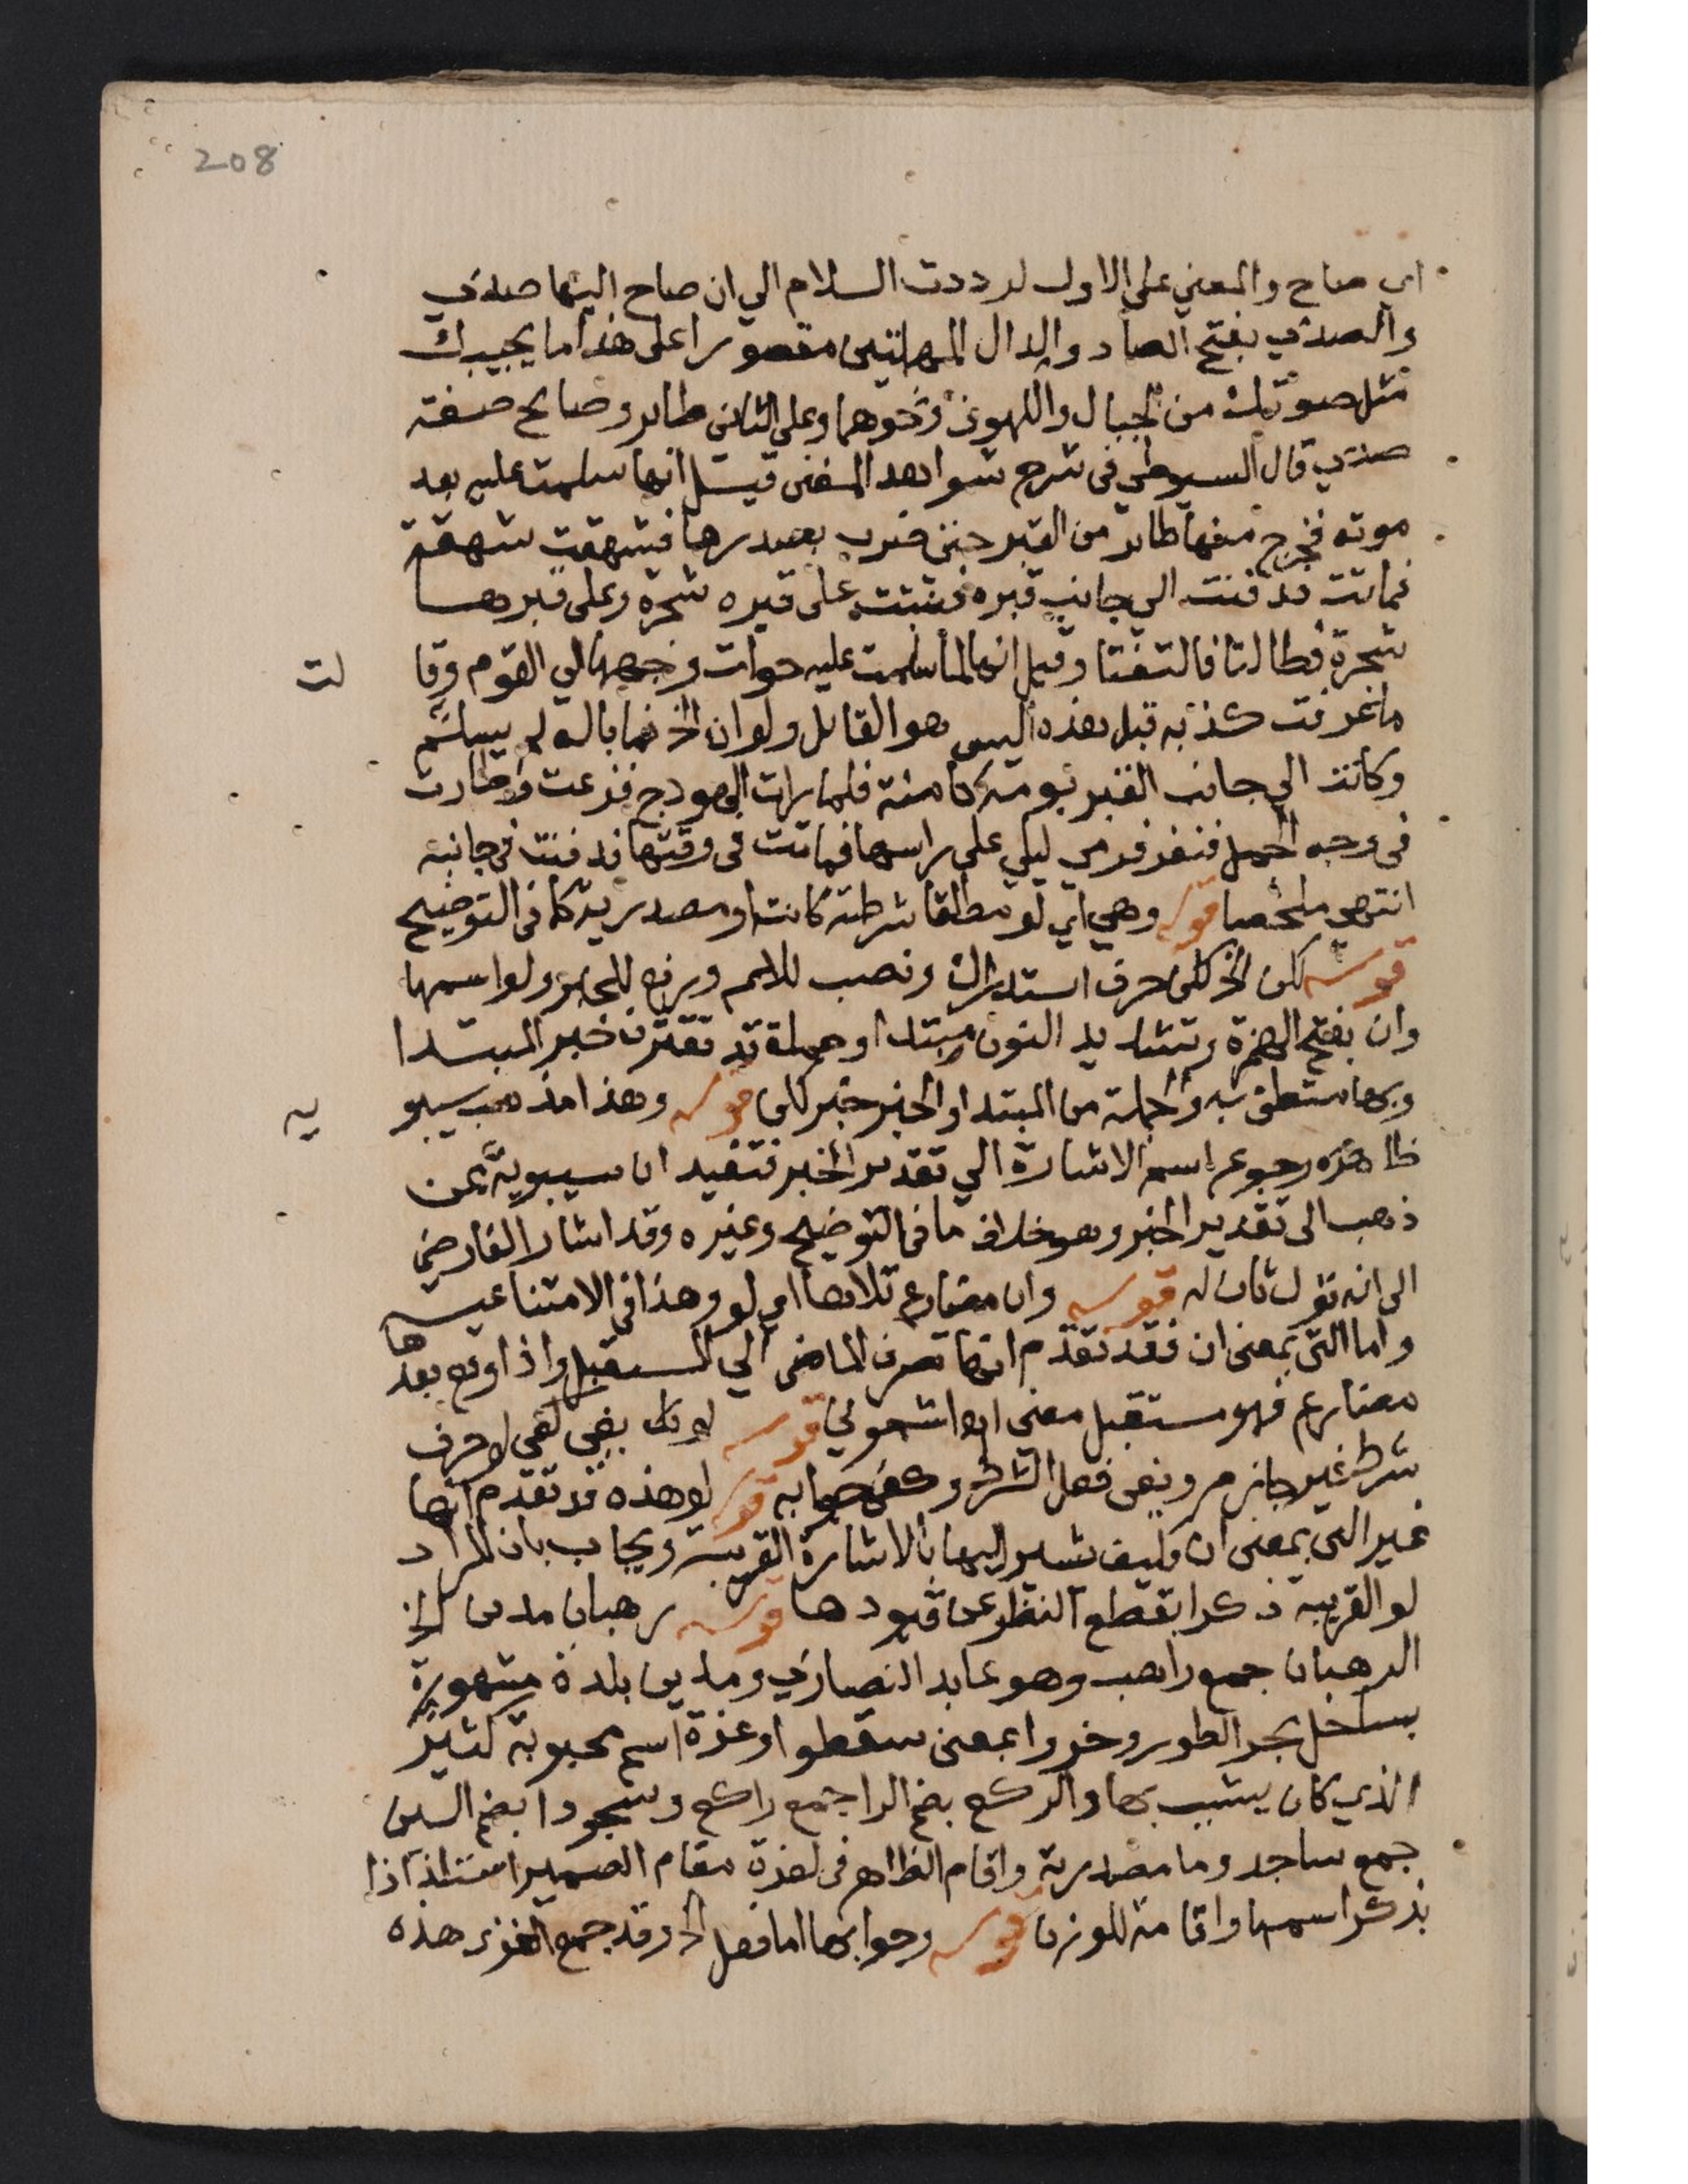 208
اي صاح والمعني علي الاول لرددت السلام الي ان صاح اليها صدي
والصدي بفتح الصاد والدال المهملتين مقصورا علي هذا ما يجيبك
مثل صوتك من الجبال والكهوف ونحوهما وعلي الثاني طاير وصايح صفته
صدي قال السيوطي في شرح شواهد المغني قيل انها سلمت عليه بعد
موته فخرج منها طاير من القبر حتي ضرب بصدرها فشهقت شهقة
فماتت فدفنت الي جانب قبره فنبتت علي قبره شجرة وعلي قبرها
شجرة فطالتا فالتفتا وقيل انها لما سلمت عليه حولت وجهها الي القوم وقا
لت
ما عرفت كذبه قبل هذه اليس هو القايل ولو ان الخ فما باله لم يسلم
وكانت الي جانب القبر بومة كامنة فلما رات الهودج فزعت وطارت
في وجه الجمل فنفر فرمي ليلي علي راسها فماتت في وقتها فدفنت في جانبه
انتهي ملخصا قوله وهي اي لو مطلقا شرطية كانت او مصدرية كما في التوضيح
قوله لكن الخ لكن حرف استدراك ونصب للاسم ورفع للخبر ولو اسمها
وان بفتح الهمزة وتشديد النون مبتدا وجملة قد تقترن خبر المبتدا
وبها متعلق به والجملة من المبتدا والخبر خبر لكن قوله وهذا مذهب سيبو
يه
ظاهره رجوع اسم الاشارة الي تقدير الخبر فتفيد ان سيبويه ممن
ذهب الي تقدير الخبر وهو خلاف ما في التوضيح وغيره وقد اشار الفارضي
الي انه قول ثان له قوله وان مضارع تلاها اي لو وهذا في الامتناعية
واما التي بمعني ان فقد تقدم انها تصرف الماضي الي المستقبل واذا وقع بعد
ها
مضارع فهو مستقبل معني اه اشموني قوله لو يفي كفي لو حرف
شرط غير جازم ويفي فعل الشرط وكفي جوابه قوله لو هذه قد تقدم انها
غير التي بمعني ان فكيف تشير اليها بالاشارة القريبة ويجاب بان المراد
لو القريبة ذكرا بقطع النظر عن قيودها قوله رهبان مدين الخ
الرهبان جمع راهب وهو عابد النصاري ومدين بلدة مشهورة
بساحل بحر الطور وخروا بمعني سقطوا وعزة اسم محبوبة كثير
الذي كان يشبب بها والركع بضم الرا جمع راكع وسجودا بضم السين
جمع ساجد وما مصدرية واقام الظاهر في لعزة مقام الضمير استلذاذا
بذكر اسمها واقامة للوزن قوله وجوابها اما فعل الخ وقد جمع هذه